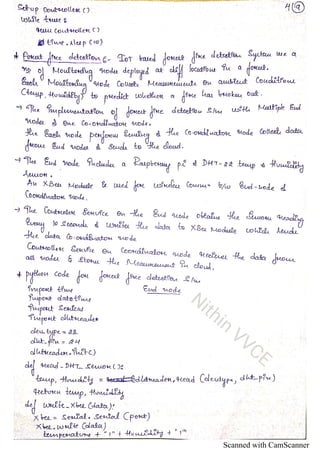 4 (19)
Setup Controller ( )
while true :
run Controller ( )
time . sleep (10)
* Forest fire detection :- IoT based forest fire detection System use a
no of Monitoring node deployed at diff locations in a forest.
Each Monitoring node Collects Measurements on ambient Conditions
(temp, Humidity) to predict whether a fire has broken out.
→ The implementation of forest fire detection S/m with Multiple End
nodes & one Co-ordinator node.
the Each node perform Sensing & the Co-ordinator node Collects data
from End nodes & sends to the cloud.
→ The End node includes a Raspberry pi & DHT-22 temp & Humidity
sensor.
An XBee Module is used for wireless Comm b/w End-node &
Coordinator node.
→ The Controller Service on the End node obtains the Sensor reading
Every 10 Seconds & writes the data to XBee Module which sends
the data Co-ordinator node
Controller Service on Coordinator node receives the data from
all nodes & Stores the Measurements in cloud.
* python Code for forest fire detection S/m
import time End node
import datetime
import Serial
import dhtreader
dev_type = 22
dht_pin = 24
dhtreader.init( )
def read_DHT_sensor( ):
temp, Humidity = dhtreader.read (devtype, dht_pin)
return temp, Humidity
def write_xbee (data):
xbee = Serial. Serial (port)
xbee. write (data)
temperature + "|" + Humidity + "|"
Nithin VVCE
Scanned with CamScanner